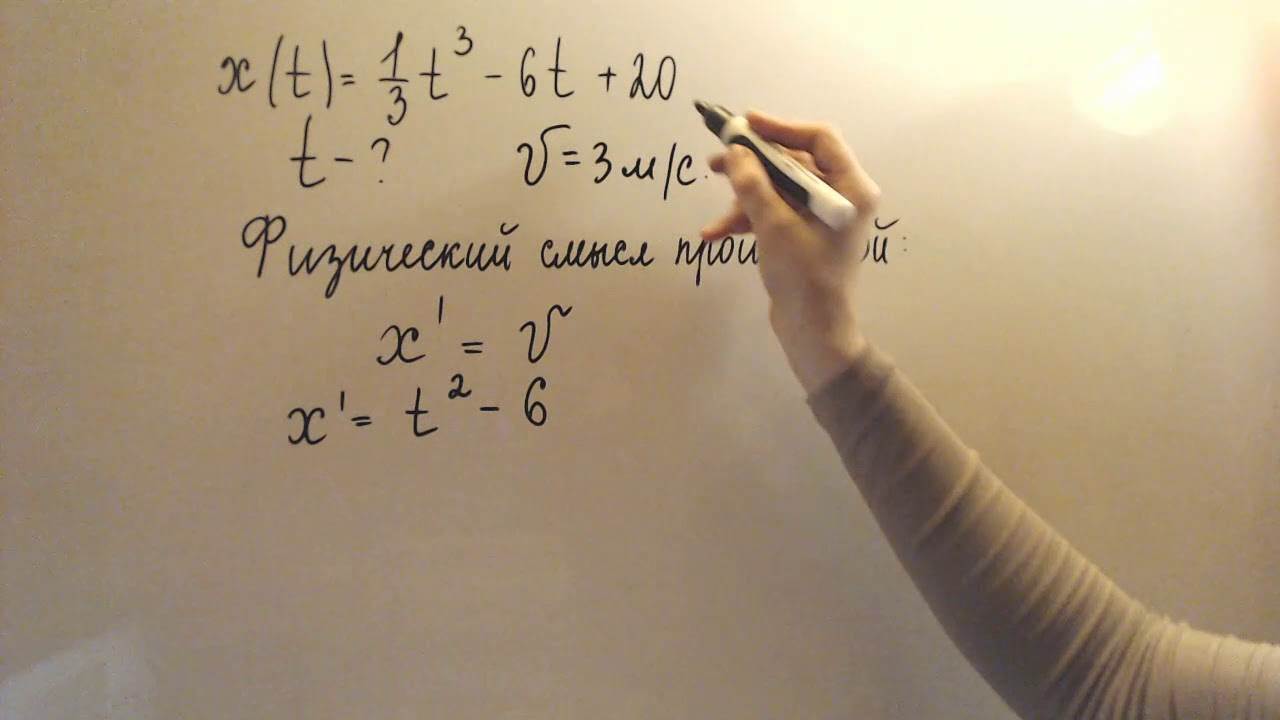 x(t) = 1/3 t³ - 6t + 20
t - ? v = 3 м/с.
Физический смысл
x' = v
x' = t² - 6